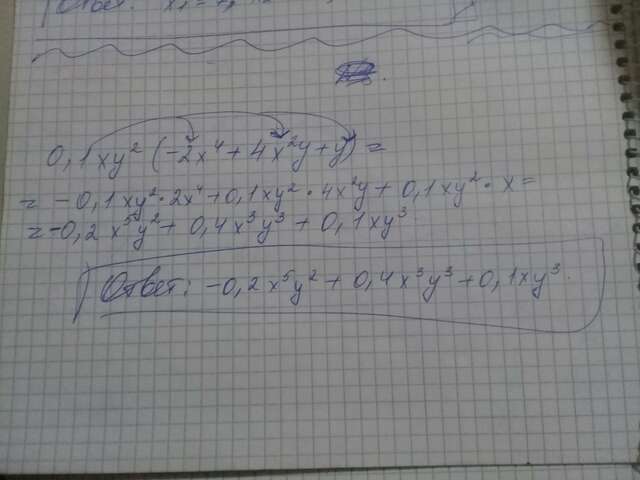 0,1xy² (-2x⁴ + 4x²y + y) =
= -0,1xy² · 2x⁴ + 0,1xy² · 4x²y + 0,1xy² · x =
= -0,2x⁵y² + 0,4x³y³ + 0,1xy³
Ответ: -0,2x⁵y² + 0,4x³y³ + 0,1xy³.